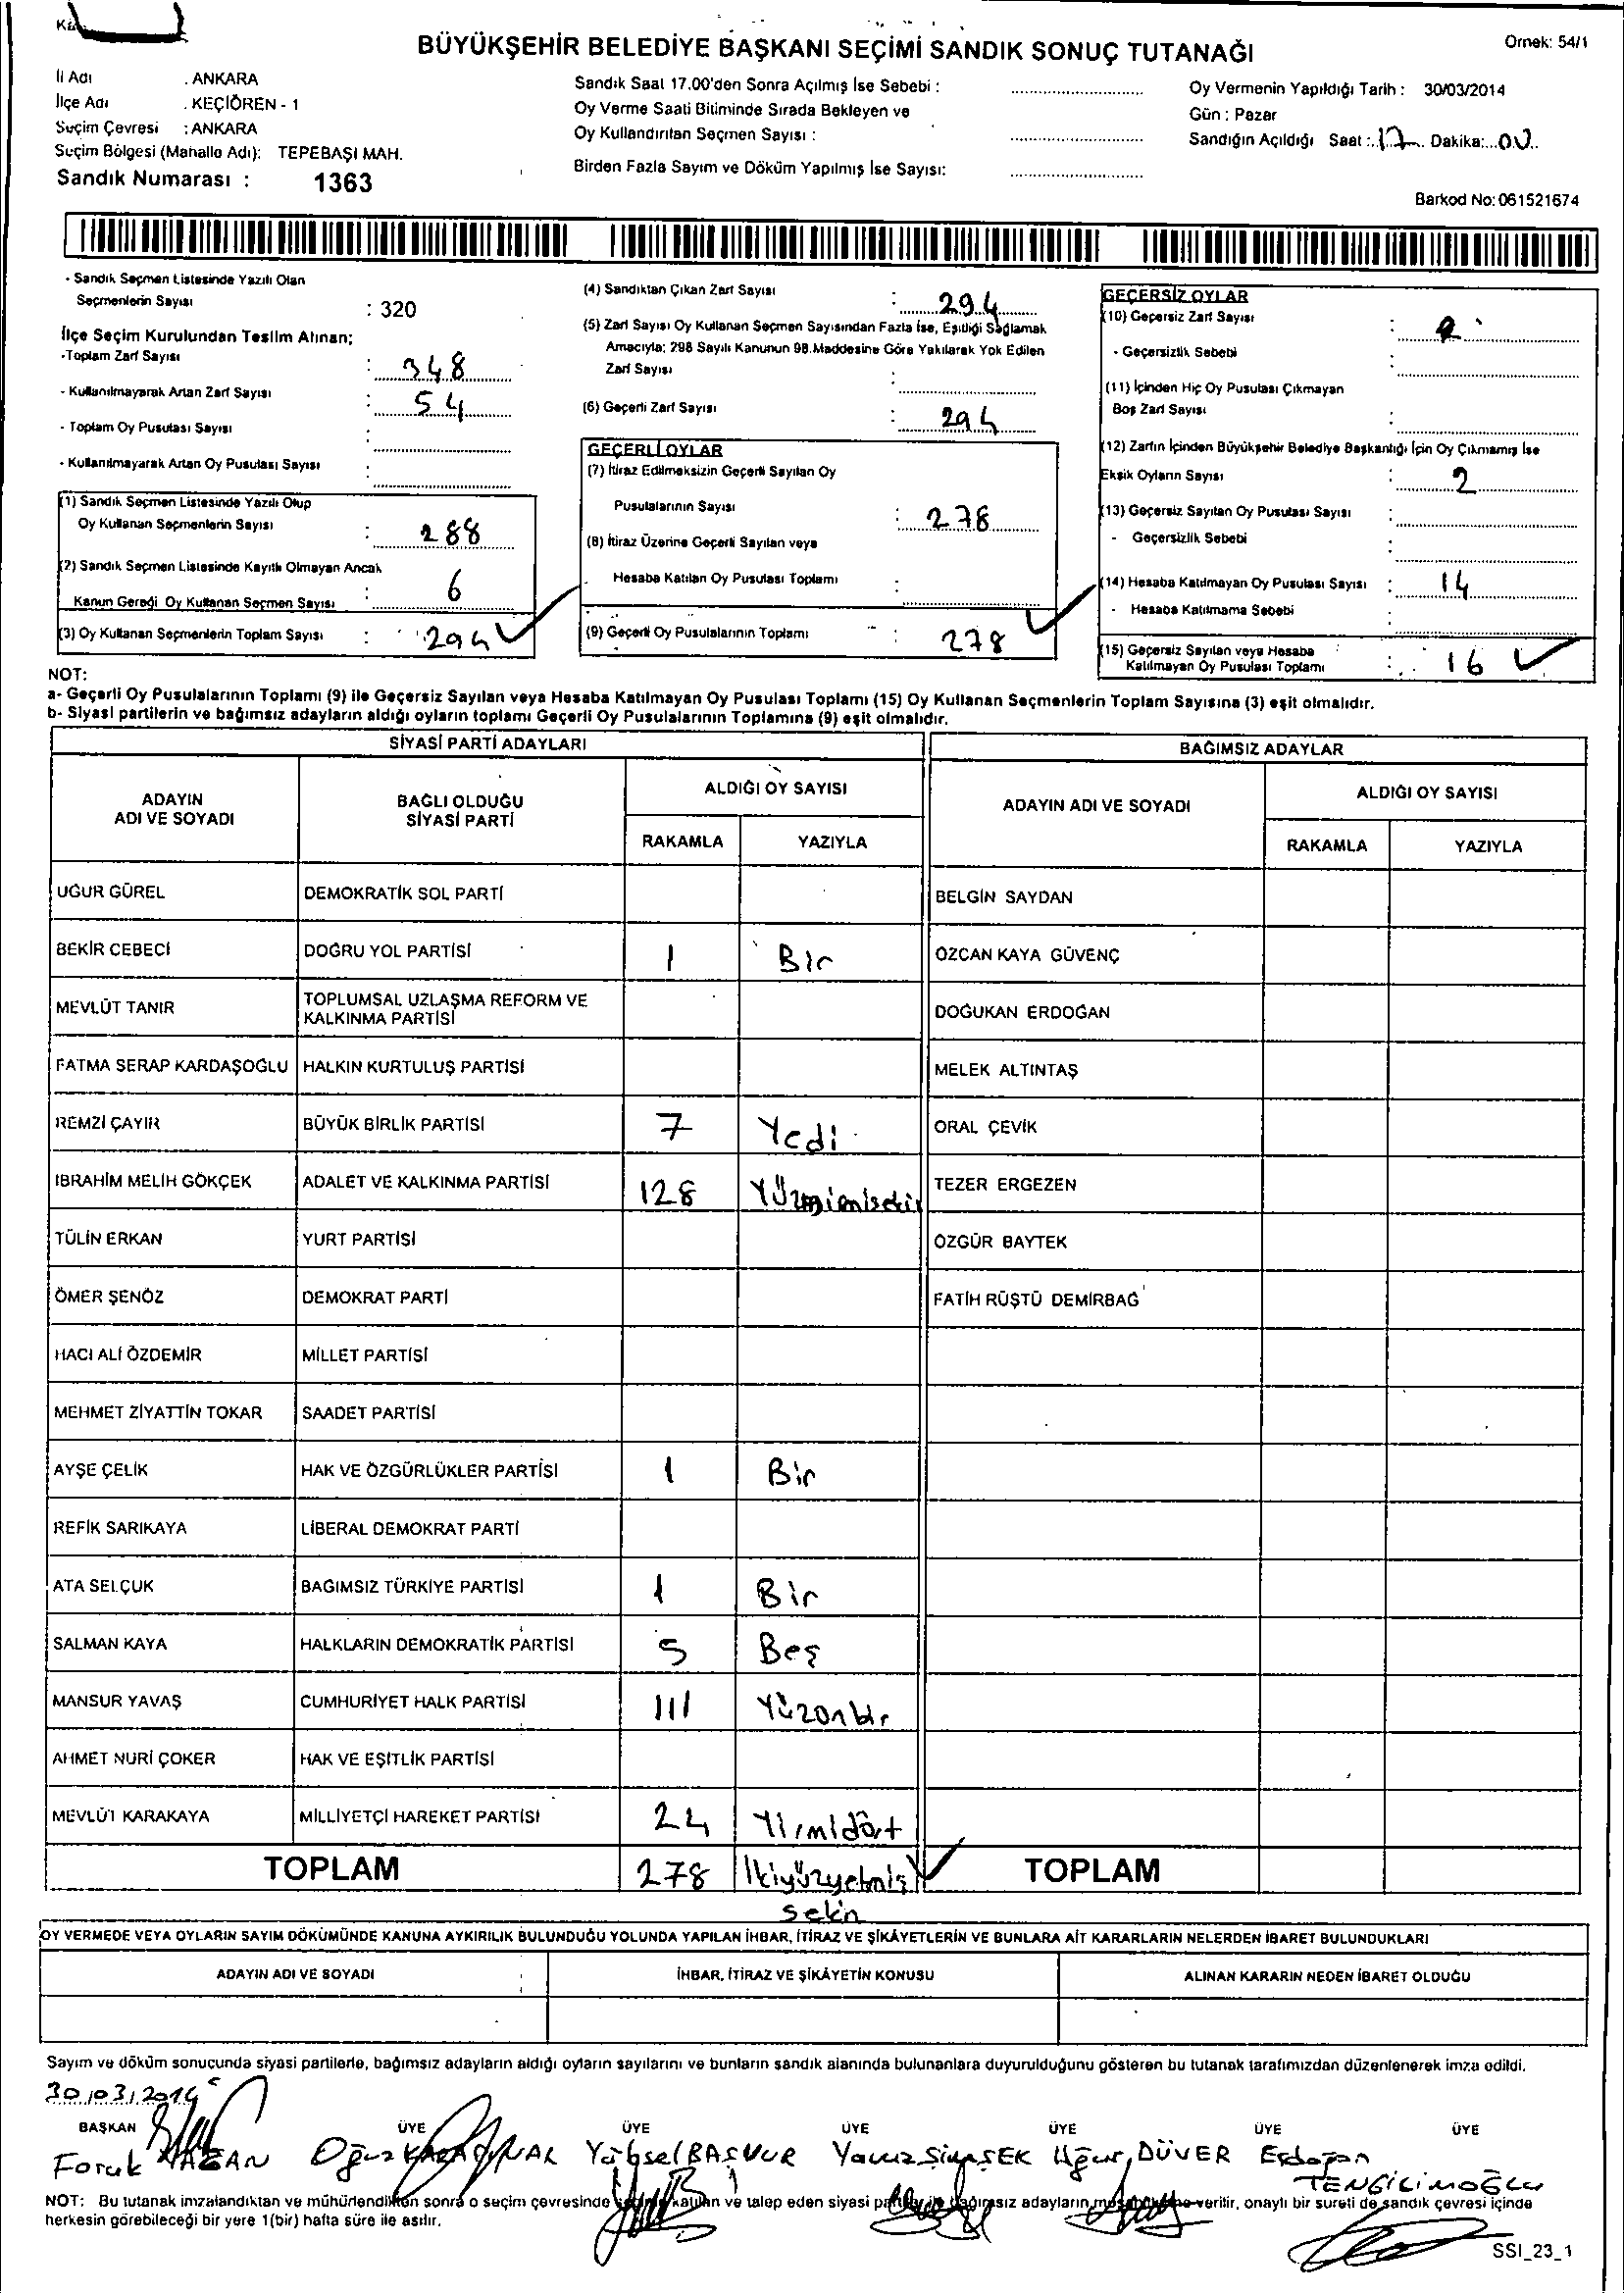 BÜYÜKŞEHİR BELEDİYE BAŞKANI SEÇİMİ SANDIK SONUÇ TUTANAĞI
Örnek: 54/1
İl Adı : ANKARA
İlçe Adı : KEÇİÖREN - 1
Seçim Çevresi : ANKARA
Seçim Bölgesi (Mahalle Adı): TEPEBAŞI MAH.
Sandık Numarası : 1363
Sandık Saat 17.00'den Sonra Açılmış İse Sebebi :
Oy Verme Saati Bitiminde Sırada Bekleyen ve
Oy Kullandırılan Seçmen Sayısı :
Birden Fazla Sayım ve Döküm Yapılmış İse Sayısı:
Oy Vermenin Yapıldığı Tarih : 30/03/2014
Gün : Pazar
Sandığın Açıldığı Saat : 17 Dakika: 00
Barkod No: 061521674
- Sandık Seçmen Listesinde Yazılı Olan
Seçmenlerin Sayısı : 320
İlçe Seçim Kurulundan Teslim Alınan;
-Toplam Zarf Sayısı : 348
- Kullanılmayarak Artan Zarf Sayısı : 54
- Toplam Oy Pusulası Sayısı :
- Kullanılmayarak Artan Oy Pusulası Sayısı :
(1) Sandık Seçmen Listesinde Yazılı Olup
Oy Kullanan Seçmenlerin Sayısı : 288
(2) Sandık Seçmen Listesinde Kayıtlı Olmayan Ancak
Kanun Gereği Oy Kullanan Seçmen Sayısı : 6
(3) Oy Kullanan Seçmenlerin Toplam Sayısı : 294
(4) Sandıktan Çıkan Zarf Sayısı : 294
(5) Zarf Sayısı Oy Kullanan Seçmen Sayısından Fazla İse, Eşitliği Sağlamak
Amacıyla; 298 Sayılı Kanunun 98.Maddesine Göre Yakılarak Yok Edilen
Zarf Sayısı :
(6) Geçerli Zarf Sayısı : 294
GEÇERLİ OYLAR
(7) İtiraz Edilmeksizin Geçerli Sayılan Oy
Pusulalarının Sayısı : 278
(8) İtiraz Üzerine Geçerli Sayılan veya
Hesaba Katılan Oy Pusulası Toplamı :
(9) Geçerli Oy Pusulalarının Toplamı : 278
GEÇERSİZ OYLAR
(10) Geçersiz Zarf Sayısı :
- Geçersizlik Sebebi :
(11) İçinden Hiç Oy Pusulası Çıkmayan
Boş Zarf Sayısı :
(12) Zarfın İçinden Büyükşehir Belediye Başkanlığı İçin Oy Çıkmamış İse
Eksik Oyların Sayısı : 2
(13) Geçersiz Sayılan Oy Pusulası Sayısı :
- Geçersizlik Sebebi :
(14) Hesaba Katılmayan Oy Pusulası Sayısı : 14
- Hesaba Katılmama Sebebi :
(15) Geçersiz Sayılan veya Hesaba
Katılmayan Oy Pusulası Toplamı : 16
NOT:
a- Geçerli Oy Pusulalarının Toplamı (9) ile Geçersiz Sayılan veya Hesaba Katılmayan Oy Pusulası Toplamı (15) Oy Kullanan Seçmenlerin Toplam Sayısına (3) eşit olmalıdır.
b- Siyasi partilerin ve bağımsız adayların aldığı oyların toplamı Geçerli Oy Pusulalarının Toplamına (9) eşit olmalıdır.
SİYASİ PARTİ ADAYLARI
BAĞIMSIZ ADAYLAR
ADAYIN ADI VE SOYADI
BAĞLI OLDUĞU SİYASİ PARTİ
ALDIĞI OY SAYISI
RAKAMLA YAZIYLA
ADAYIN ADI VE SOYADI
ALDIĞI OY SAYISI
RAKAMLA YAZIYLA
UĞUR GÜREL DEMOKRATİK SOL PARTİ BELGİN SAYDAN
BEKİR CEBECİ DOĞRU YOL PARTİSİ 1 Bir ÖZCAN KAYA GÜVENÇ
MEVLÜT TANIR TOPLUMSAL UZLAŞMA REFORM VE KALKINMA PARTİSİ DOĞUKAN ERDOĞAN
FATMA SERAP KARDAŞOĞLU HALKIN KURTULUŞ PARTİSİ MELEK ALTINTAŞ
REMZİ ÇAYIR BÜYÜK BİRLİK PARTİSİ 7 Yedi ORAL ÇEVİK
İBRAHİM MELİH GÖKÇEK ADALET VE KALKINMA PARTİSİ 128 TEZER ERGEZEN
TÜLİN ERKAN YURT PARTİSİ ÖZGÜR BAYTEK
ÖMER ŞENÖZ DEMOKRAT PARTİ FATİH RÜŞTÜ DEMİRBAĞ
HACI ALİ ÖZDEMİR MİLLET PARTİSİ
MEHMET ZİYATTİN TOKAR SAADET PARTİSİ
AYŞE ÇELİK HAK VE ÖZGÜRLÜKLER PARTİSİ 1 Bir
REFİK SARIKAYA LİBERAL DEMOKRAT PARTİ
ATA SELÇUK BAĞIMSIZ TÜRKİYE PARTİSİ 1 Bir
SALMAN KAYA HALKLARIN DEMOKRATİK PARTİSİ 5 Beş
MANSUR YAVAŞ CUMHURİYET HALK PARTİSİ 111 Yüzonbir
AHMET NURİ ÇOKER HAK VE EŞİTLİK PARTİSİ
MEVLÜT KARAKAYA MİLLİYETÇİ HAREKET PARTİSİ 24 Yirmidört
TOPLAM 278 İkiyüzyetmiş TOPLAM
sekin
OY VERMEDE VEYA OYLARIN SAYIM DÖKÜMÜNDE KANUNA AYKIRILIK BULUNDUĞU YOLUNDA YAPILAN İHBAR, İTİRAZ VE ŞİKÂYETLERİN VE BUNLARA AİT KARARLARIN NELERDEN İBARET BULUNDUKLARI
ADAYIN ADI VE SOYADI İHBAR, İTİRAZ VE ŞİKÂYETİN KONUSU ALINAN KARARIN NEDEN İBARET OLDUĞU
Sayım ve döküm sonucunda siyasi partilerle, bağımsız adayların aldığı oyların sayılarını ve bunların sandık alanında bulunanlara duyurulduğunu gösteren bu tutanak tarafımızdan düzenlenerek imza edildi.
30/03/2014
BAŞKAN ÜYE ÜYE ÜYE ÜYE ÜYE ÜYE
Faruk Oğuz Yüksel BAŞVUR Yavuz ŞİMŞEK Uğur DÜVER Erdoğan
TENGİLİMOĞLU
NOT: Bu tutanak imzalandıktan ve mühürlendikten sonra o seçim çevresinde seçime katılan ve talep eden siyasi partiler ile bağımsız adayların müşahitlerine verilir, onaylı bir sureti de sandık çevresi içinde
herkesin görebileceği bir yere 1(bir) hafta süre ile asılır.
SSI_23_1